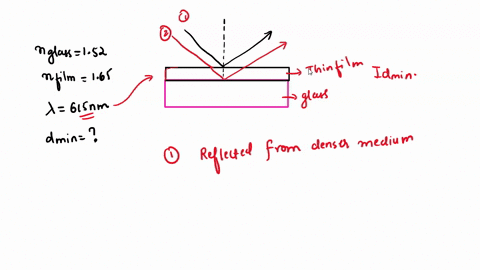 ①
②
nglass = 1.52
nfilm = 1.65
λ = 615nm
dmin = ?
Thinfilm
Idmin.
glass
① Reflected from denser medium